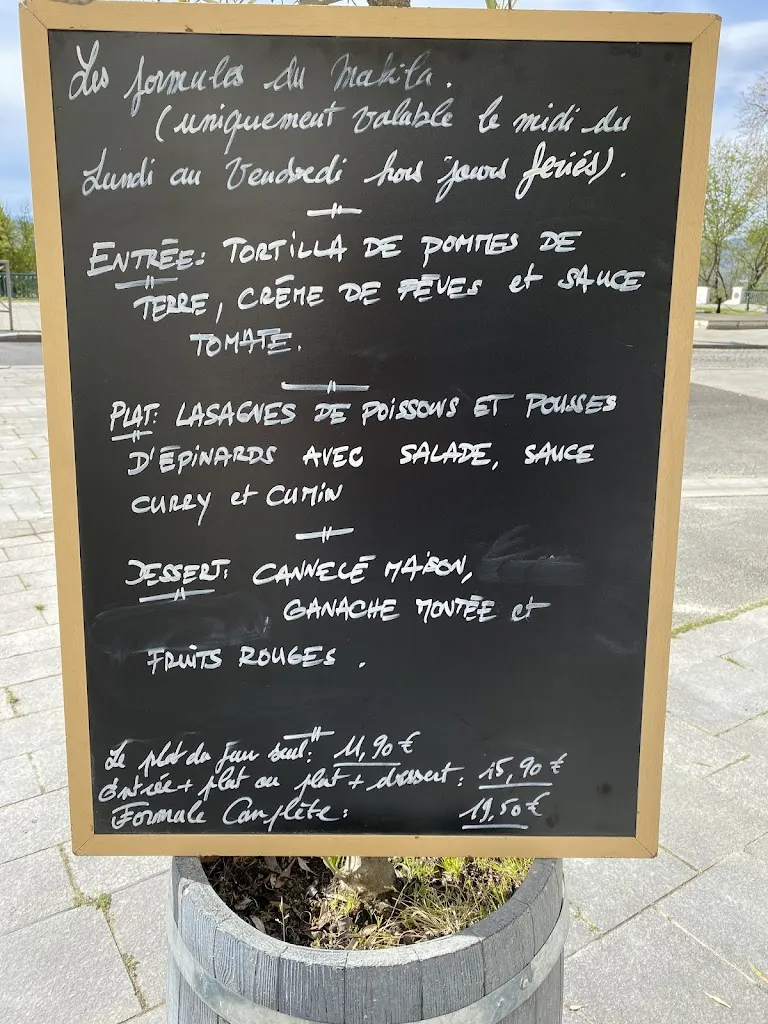 Les formules du Makila.
(uniquement valable le midi du
Lundi au Vendredi hors jours feriés).
ENTRÉE: TORTILLA DE POMMES DE
TERRE, CRÈME DE FÈVES et SAUCE
TOMATE.
PLAT: LASAGNES DE POISSONS ET POUSSES
D'ÉPINARDS AVEC SALADE, SAUCE
CURRY et CUMIN
DESSERT: CANNELÉ MAISON,
GANACHE MONTÉE et
FRUITS ROUGES.
Le plat du jour seul: 11,90€
Entrée + plat ou plat + dessert: 15,90€
Formule Complète: 19,50€